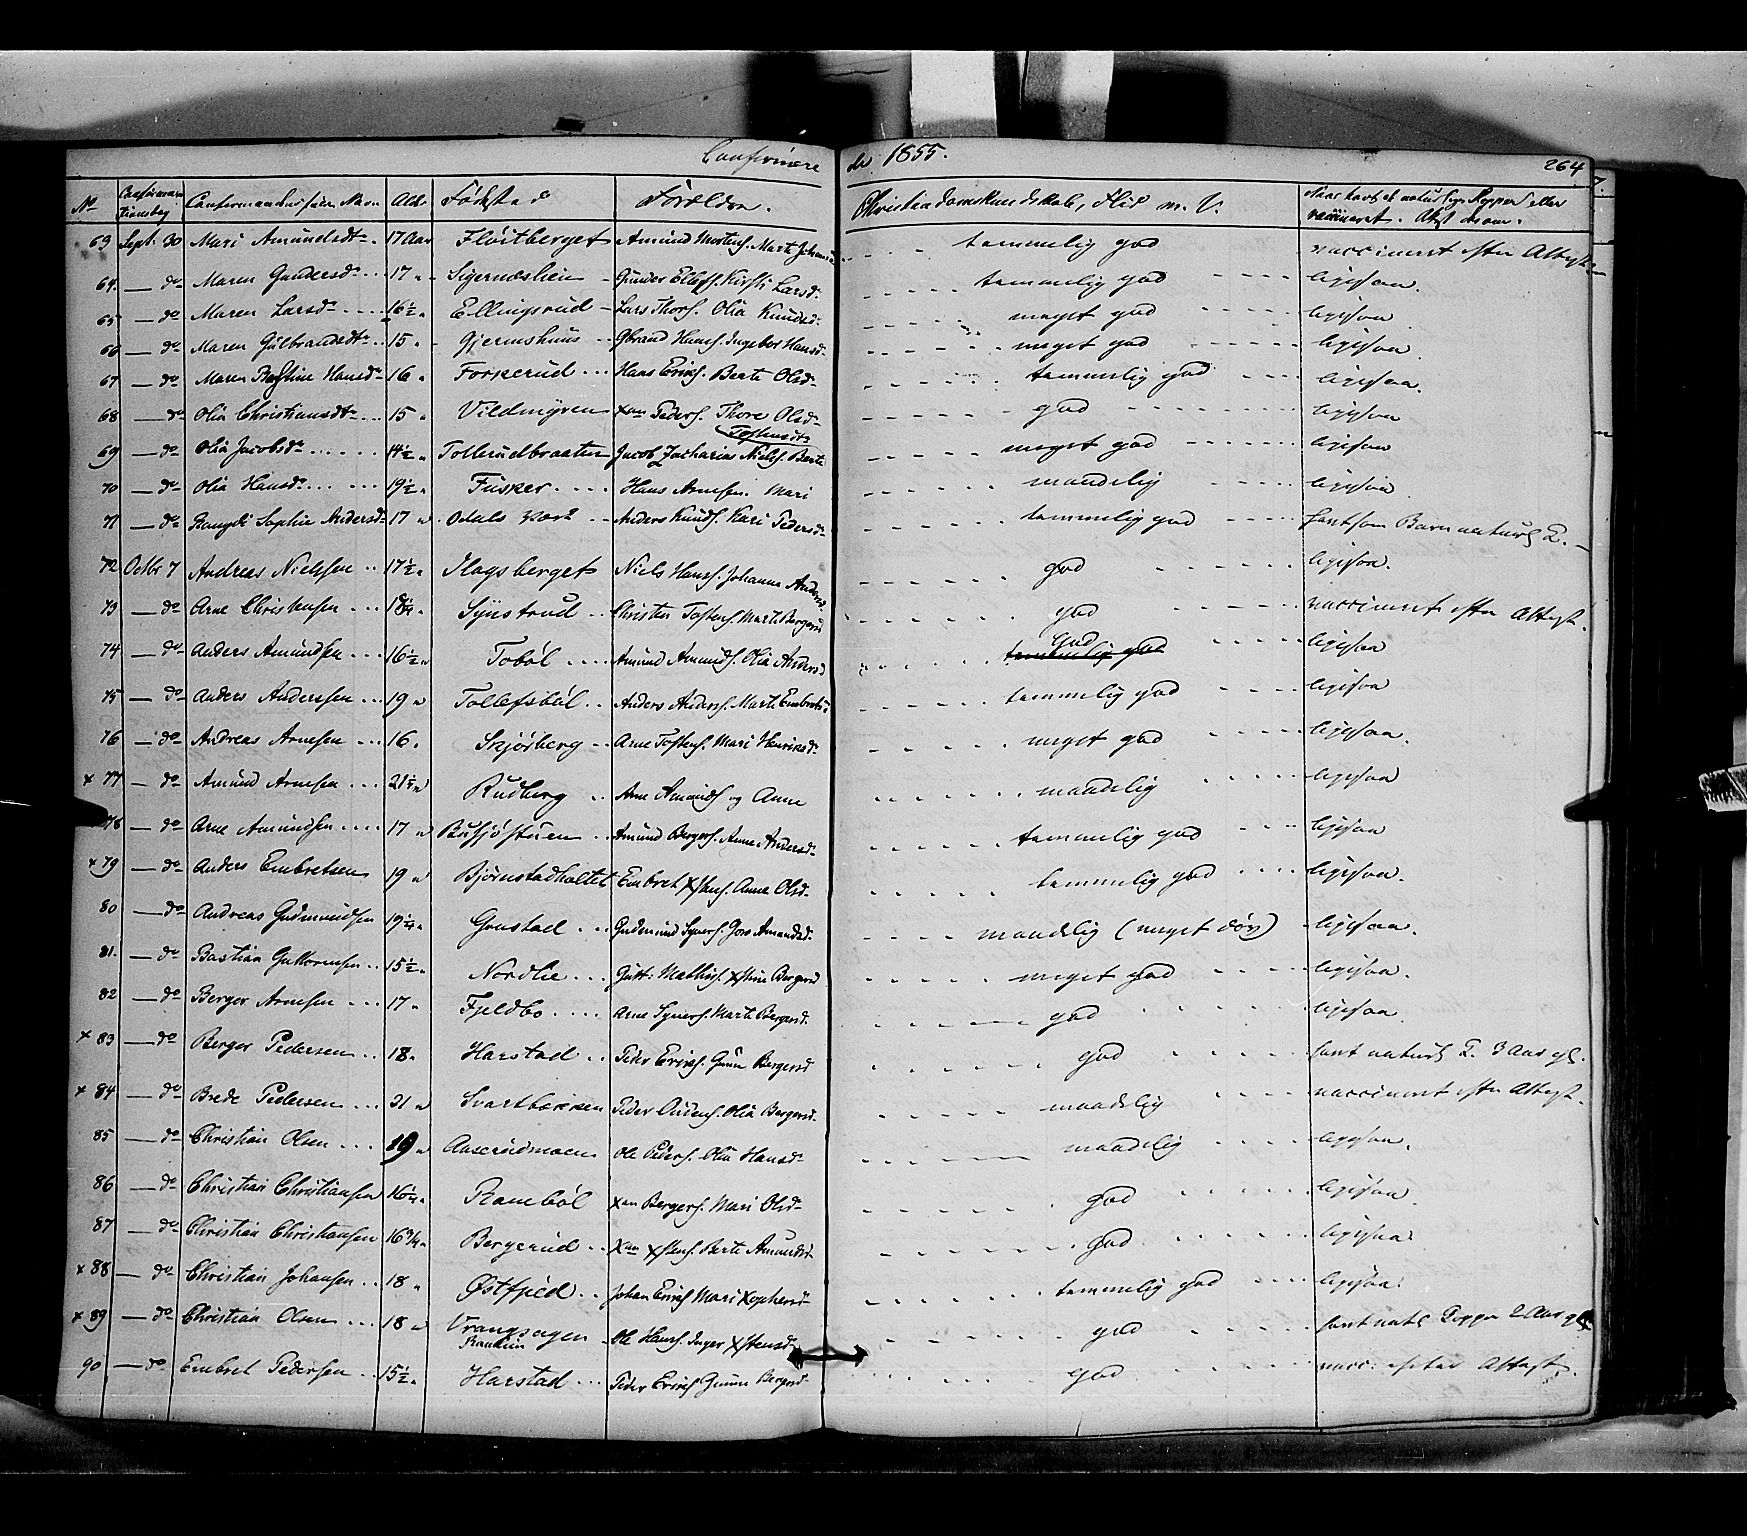 Confirmere de 1855. 264
No Confirmationsdag Confirmandernes fulde Navn Alder Fødested Forældre. Christendomskundskab, Flid m. V. Naar havt de naturlige Kopper eller vaccineret. Attest derom.
63 Sept. 30 Mari Amundsdtr 17 Aar Fløitberget Amund Mortens. Marte temmelig god vaccineret efter Attest
64. — do Maren Gundersdr 17 " Gunder Kirsti Larsd. temmelig god ligesaa.
65 — do Maren Larsdr 16½ " Ellingsrud Lars Thors. Olia Knudsd. meget god ligesaa
66 — do Maren Gulbrandsdtr 15 " Gjermshuus Gbrand Hans. Ingebor Hansd. meget god ligesaa.
67 — do Maren Hansdr 16 " Forkerud Hans Erichs. Berte Olsdr temmelig god ligesaa.
68 — do Olia Christiansdtr 15 " Vildmyren Xan Peders. Thore Olsdr god ligesaa
69 — do Olia Jacobsdr 14½ " Tollerudbraaten Jacob Zacharias Niels. Berte Tostensdtr meget god ligesaa
70 — do Olia Hansdr 19½ " Fusker Hans Arnesen Mari maadelig ligesaa
71 — do Sophie Andersdr 17 " Odals Værk Anders Knuds. Kari Pedersdr temmelig god havt som Barn naturl K.
72 Octbr 7 Andreas Nielsen 17½ " Niels Hans. Johanne Andersd. god ligesaa.
73 — do Arne Christensen " Synstrud Christen Tostens. Marte Bergersd god vaccineret efter Attest.
74 — do Anders Amundsen 16½ " Tobøl Amund Amunds. Olia Andersd god temmelig god ligesaa
75 — do Anders Andersen 19 " Tollefsbøl Anders Anders. Marte Embretsd temmelig god ligesaa
76 — do Andreas Arnesen 16 " Skjørberg Arne Tostens. Mari Henriksdr meget god ligesaa.
x 77 — do Amund Arnesen " Rudberg Arne Amunds og Anne maadelig ligesaa
78 — do Arne Amundsen 17 " Amund Bergers. Anne Andersdr temmelig god ligesaa
x 79 — do Anders Embretsen 19 " Bjørnstadholtet Embret Xstens. Anne Olsdr temmelig god ligesaa.
80 — do Andreas Gudmundsen 19¼ " Grastad Gudmund Syvers. Amundsd. maadelig (meget døv) ligesaa.
81. — do Bastian Guttormsen 15½ " Nordlie Gutt: Mathis. Xstine Bergersd meget god ligesaa.
82 — do Berger Arnesen 17 " Fjeldbo Arne Syvers. Marte Bergersd. god ligesaa
x 83 — do Berger Pedersen 18 " Harstad Peder Erichs. Gunne Bergersd god havt naturl K. 3 Aar gl.
x 84 — do Brede Pedersen 21 " Svartbækken Peder Olia Bergersd. maadelig vaccineret efter Attest.
85 — do Christian Olsen 19 " Aaserudmoen Ole Peders. Olia Hansdr maadelig ligesaa.
86 — do Christian Christiansen " Rambøl Xan Bergers. Mari Olsdr god ligesaa.
87 — do Christian Christiansen 16¾ " Bergerud Xan Xstens. Berte Amundsd god ligesaa
x 88 — do Christian Johansen 18 " Østfjed Johan Erichs Mari Xophersd temmelig god ligesaa
x 89 — do Christian Olsen 18 " Vrangsagen Ole Hans. Inger Xstensd god havt natl Kopper 2 Aar gl
90 — do Embret Pedersen 15½ " Harstad Peder Erichs Gunne Bergersd. god vacc: efter Attest.